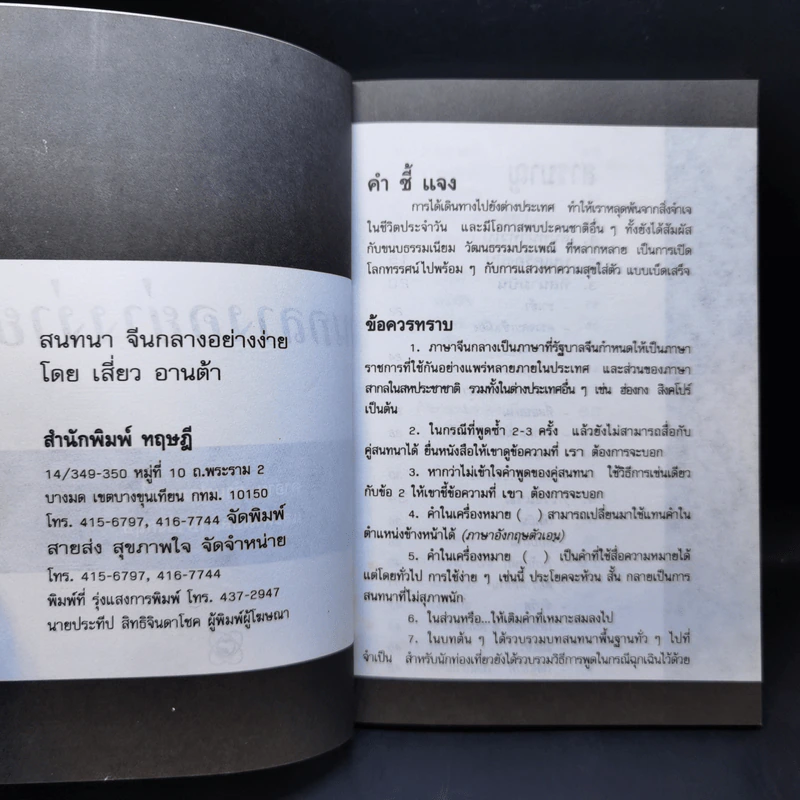 สนทนา จีนกลางอย่างง่าย
โดย เสี่ยว อานต้า
สำนักพิมพ์ ทฤษฎี
14/349-350 หมู่ที่ 10 ถ.พระราม 2
บางมด เขตบางขุนเทียน กทม. 10150
โทร. 415-6797, 416-7744 จัดพิมพ์
สายส่ง สุขภาพใจ จัดจำหน่าย
โทร. 415-6797, 416-7744
พิมพ์ที่ รุ่งแสงการพิมพ์ โทร. 437-2947
นายประทีป สิทธิจินดาโชค ผู้พิมพ์ผู้โฆษณา
คำ ชี้ แจง
การได้เดินทางไปยังต่างประเทศ ทำให้เราหลุดพ้นจากสิ่งจำเจ
ในชีวิตประจำวัน และมีโอกาสพบปะคนชาติอื่น ๆ ทั้งยังได้สัมผัส
กับขนบธรรมเนียม วัฒนธรรมประเพณี ที่หลากหลาย เป็นการเปิด
โลกทรรศน์ไปพร้อม ๆ กับการแสวงหาความสุขใส่ตัว แบบเบ็ดเสร็จ
ข้อควรทราบ
1. ภาษาจีนกลางเป็นภาษาที่รัฐบาลจีนกำหนดให้เป็นภาษา
ราชการที่ใช้กันอย่างแพร่หลายภายในประเทศ และส่วนของภาษา
สากลในสหประชาชาติ รวมทั้งในต่างประเทศอื่น ๆ เช่น ฮ่องกง สิงคโปร์
เป็นต้น
2. ในกรณีที่พูดซ้ำ 2-3 ครั้ง แล้วยังไม่สามารถสื่อกับ
คู่สนทนาได้ ยื่นหนังสือให้เขาดูข้อความที่ เรา ต้องการจะบอก
3. หากว่าไม่เข้าใจคำพูดของคู่สนทนา ใช้วิธีการเช่นเดียว
กับข้อ 2 ให้เขาชี้ข้อความที่ เขา ต้องการจะบอก
4. คำในเครื่องหมาย ( ) สามารถเปลี่ยนมาใช้แทนคำใน
ตำแหน่งข้างหน้าได้ (ภาษาอังกฤษตัวเอน)
5. คำในเครื่องหมาย ( ) เป็นคำที่ใช้สื่อความหมายได้
แต่โดยทั่วไป การใช้ง่าย ๆ เช่นนี้ ประโยคจะห้วน สั้น กลายเป็นการ
สนทนาที่ไม่สุภาพนัก
6. ในส่วนหรือ...ให้เติมคำที่เหมาะสมลงไป
7. ในบทต้น ๆ ได้รวบรวมบทสนทนาพื้นฐานทั่ว ๆ ไปที่
จำเป็น สำหรับนักท่องเที่ยวยังได้รวบรวมวิธีการพูดในกรณีฉุกเฉินไว้ด้วย